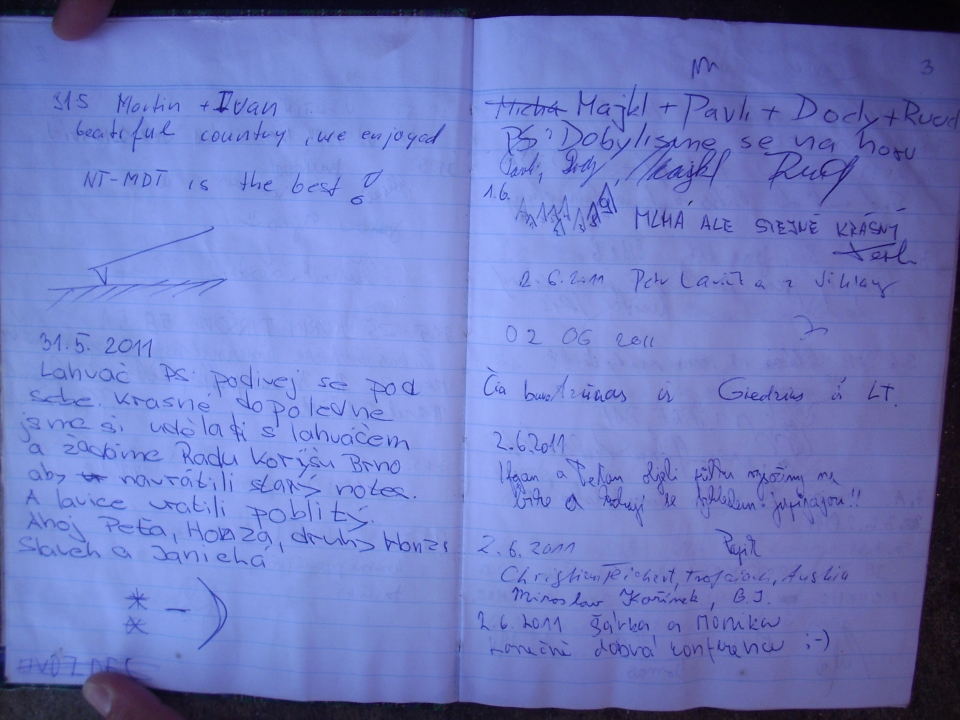 315 Martin + Ivan
beatiful country, we enjoyed
NT-MDT is the best!
31.5. 2011
Lahváč PS: podivej se pod
sebe. Krasné dopoledne
jsme si udělali s lahváčem
a žádáme Radu Koryšů Brno
aby navrátili starý notes.
A lavice vrátili poblitý.
Ahoj Peťa, Honza, druhý Honza
Slávek a Janička
3
Micha Majkl + Pavli + Dody + Rud
PS: Dobylisme se na horu
Pavli, Dody, Majkl Rud
1.6.
MLHÁ ALE STEJNĚ KRÁSNÝ
2.6.2011 Petr Lavička z Jihlavy
02 06 2011
Čia buvo Giedrius iš LT.
2.6.2011
a
se výhledem
2.6.2011
Christian Teichert, Trofaiach, Austria
Miroslav Kořínek, B.J.
2.6.2011 Šárka a Monika
konečně dobrá konference ;-)